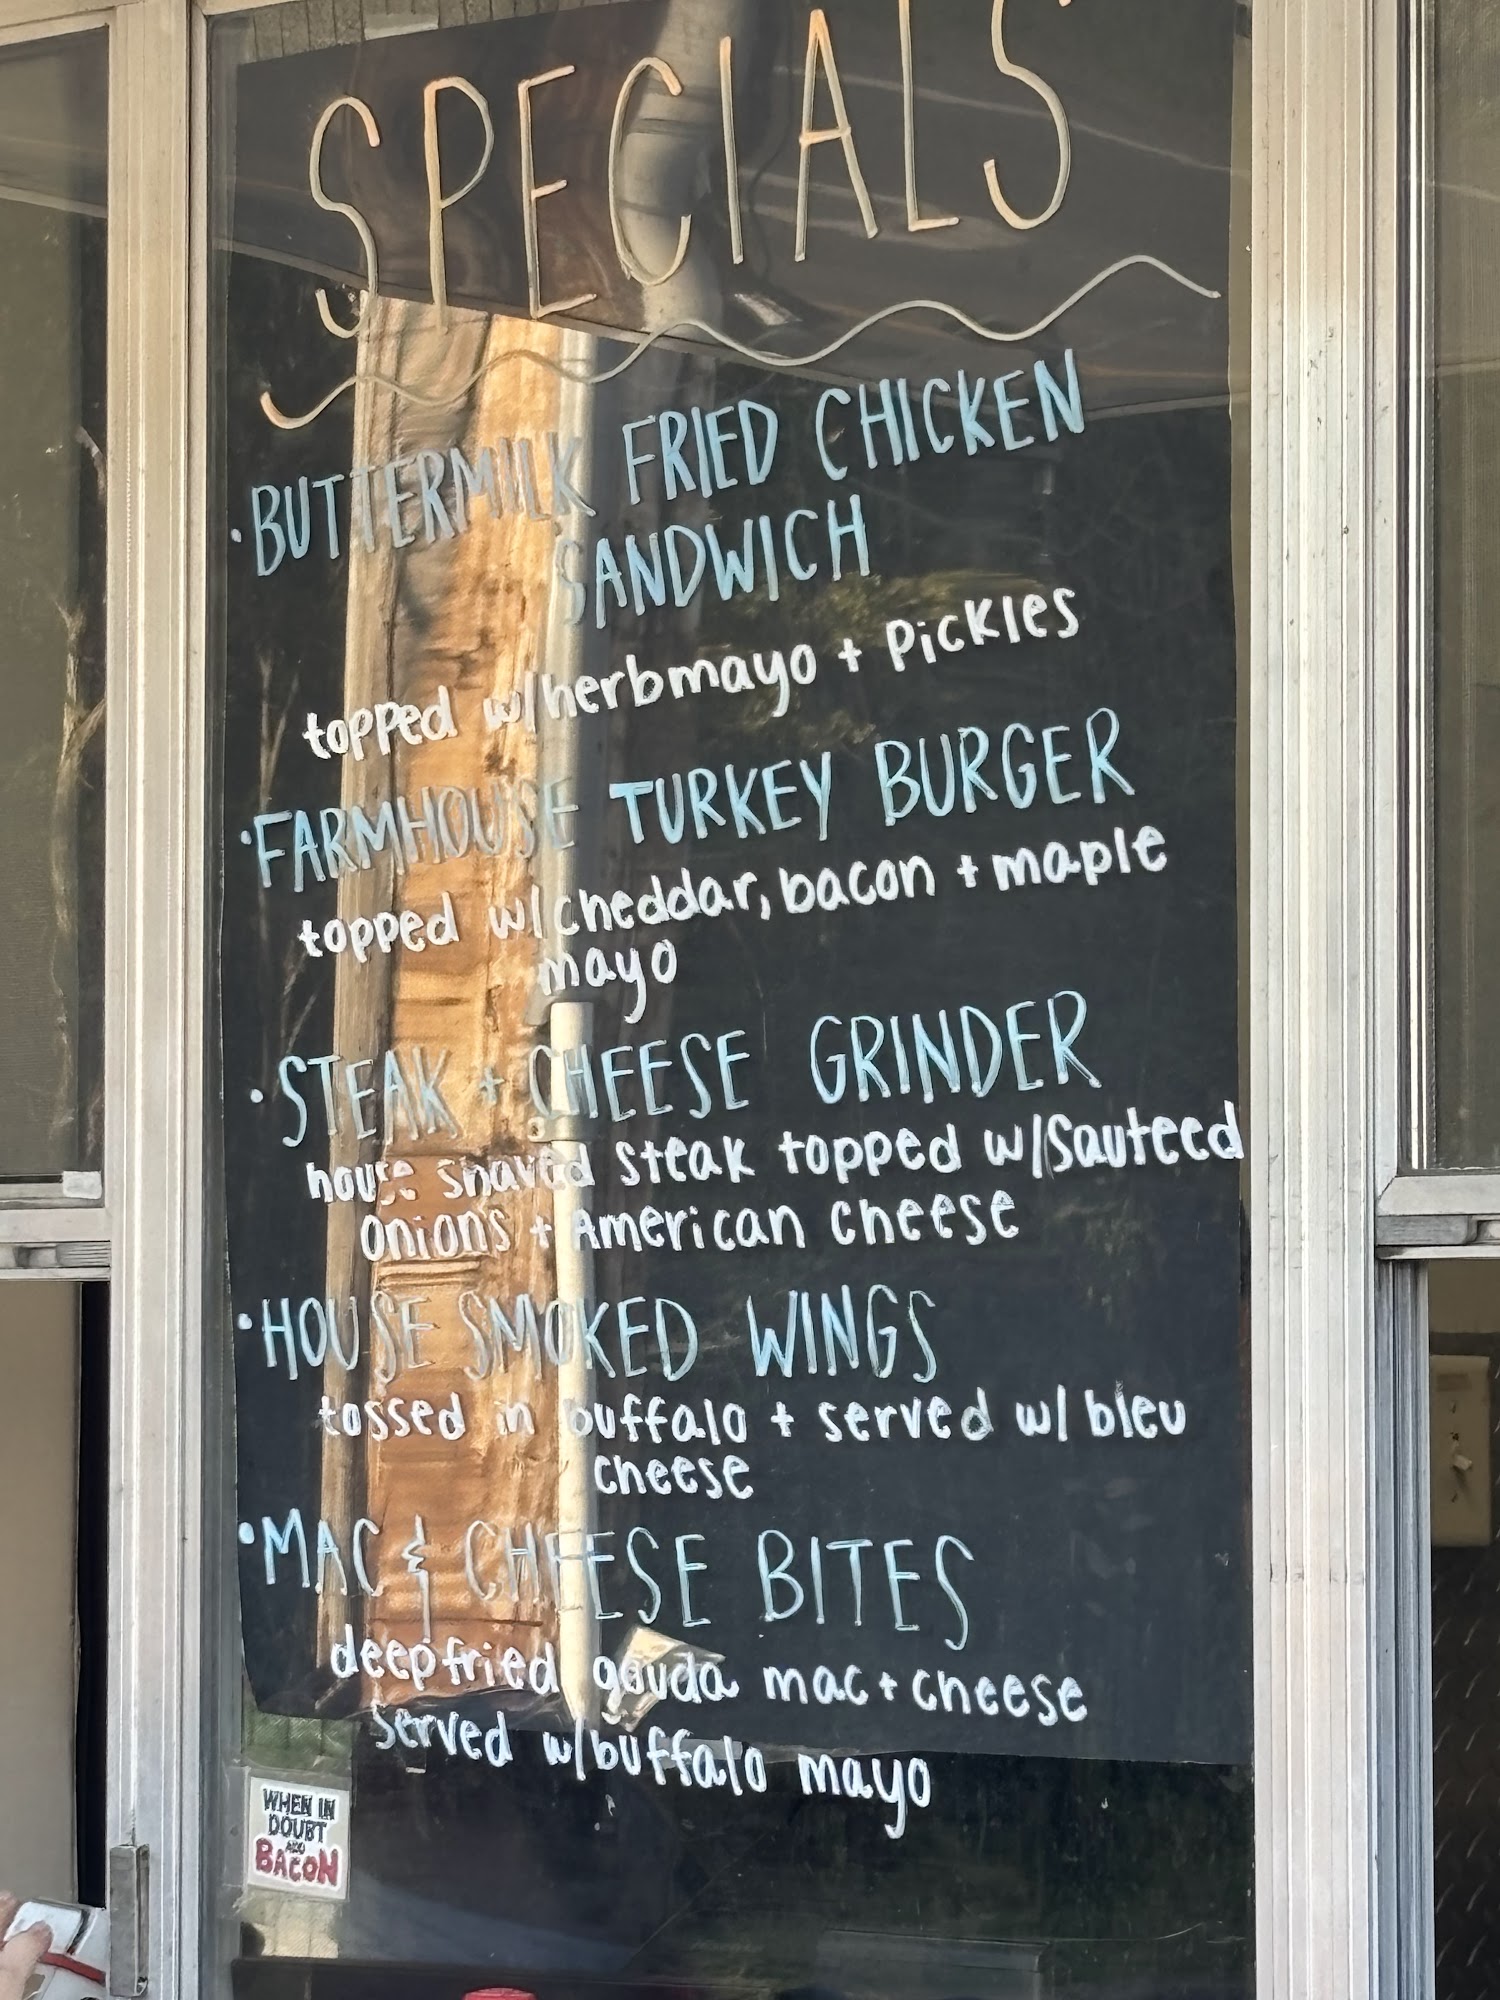 SPECIALS
• BUTTERMILK FRIED CHICKEN
SANDWICH
topped w/herbmayo + Pickles
• FARMHOUSE TURKEY BURGER
topped w/cheddar, bacon + maple
mayo
• STEAK + CHEESE GRINDER
house shaved steak topped w/sauteed
onions + American cheese
• HOUSE SMOKED WINGS
tossed in buffalo + served w/ bleu
cheese
• MAC & CHEESE BITES
deepfried gouda mac + cheese
served w/buffalo mayo
WHEN IN
DOUBT
ADD
BACON